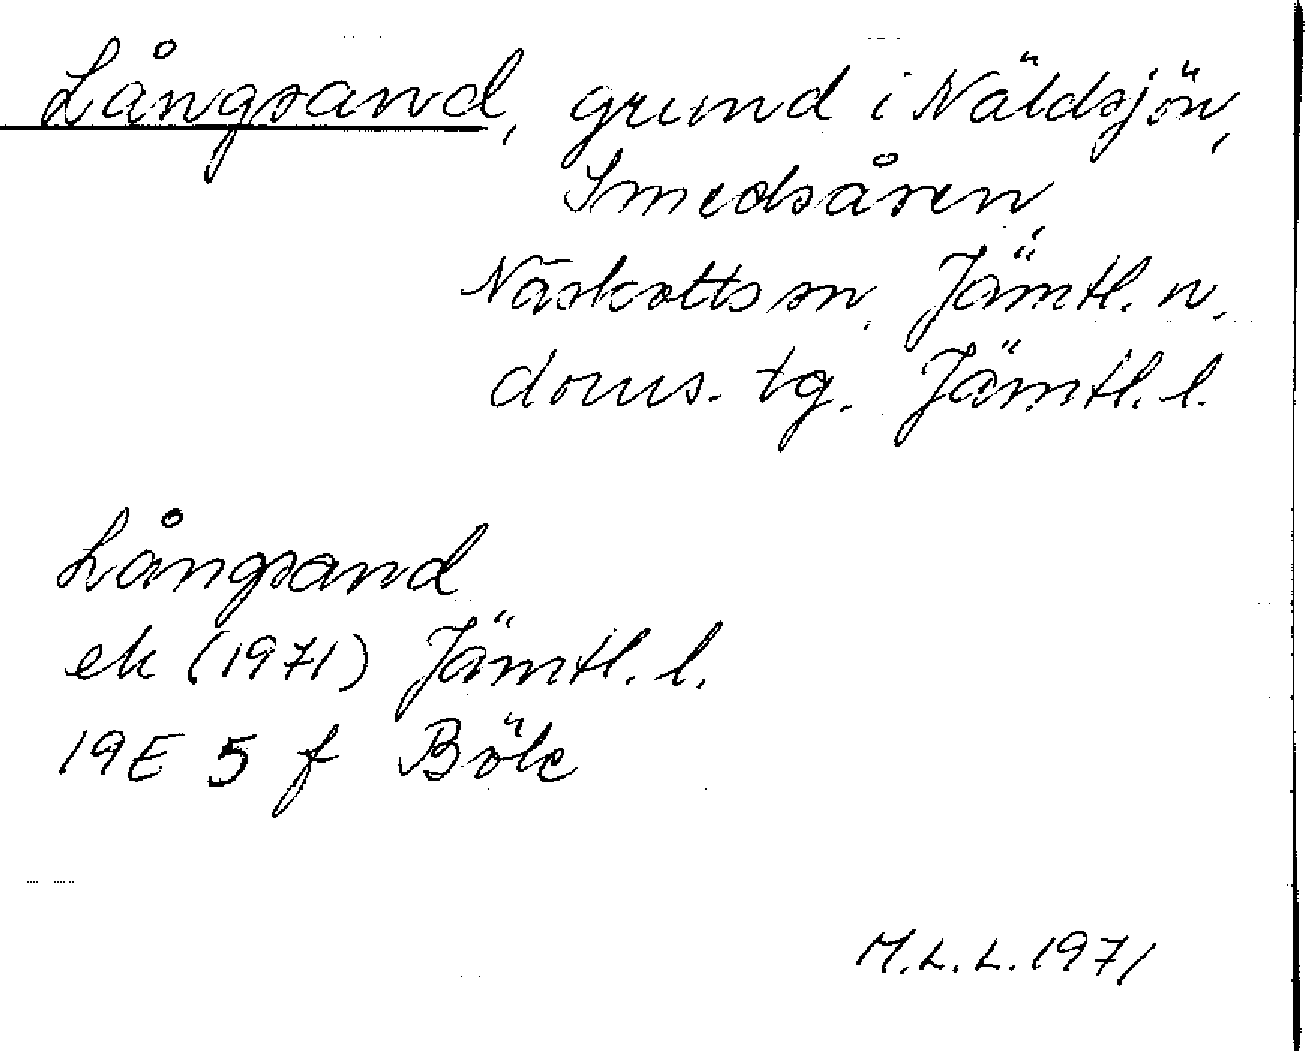 Långsand, grund i Näldsjön,
Smedsåsen,
Näskotts sn, Jämtl. n.
doms. tg. Jämtl. l.
Långsand
ek (1971) Jämtl. l.
19E 5 f Böle
M.L.L. 1971